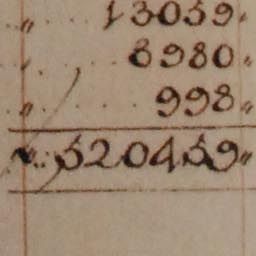 „ 13059.
„ 8980.
„ 998„
520459„